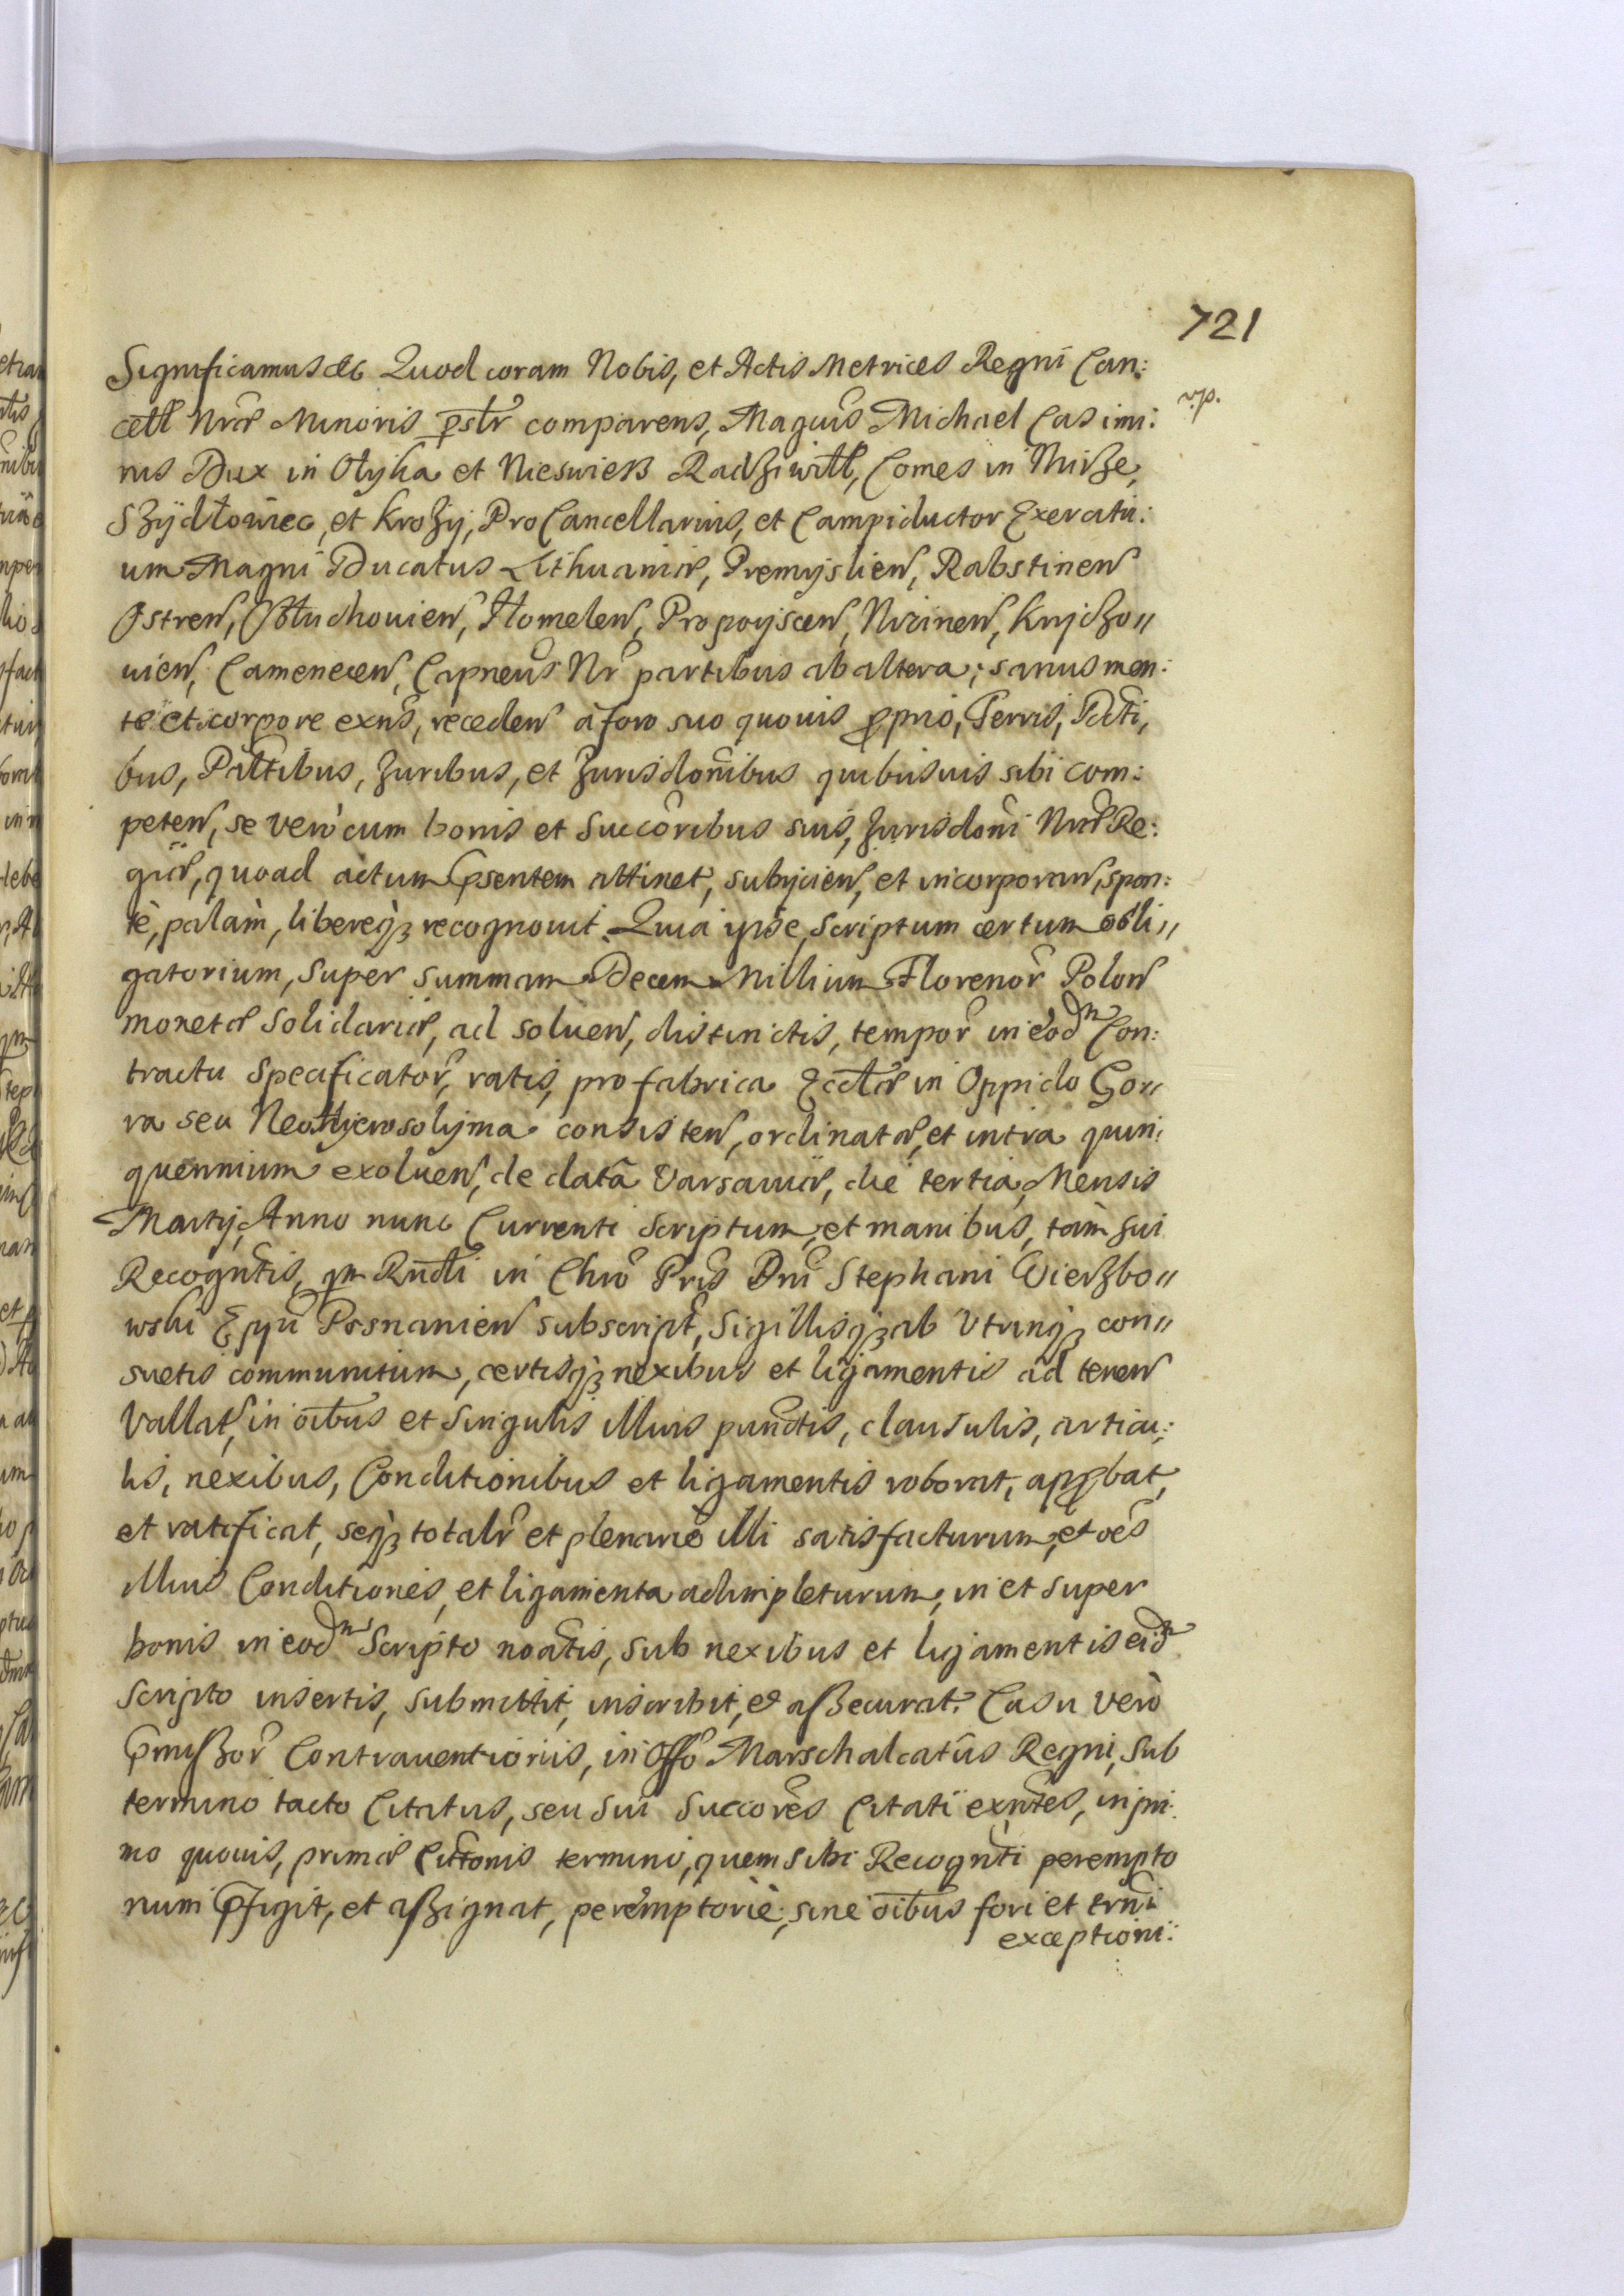 721
Significamus etc Quod coram Nobis, et Actis Metrices Regni Can:
v.p.
cell Nrae Minoris pslr comparens, Magcus Michael Casimi:
rus Dux in Olyka et Nieswiesz Radziwill, Comes in Mirze,
Szydlowiec, et Krozy, ProCancellarius, et Campiductor Exercitu:
um Magni Ducatus Lithuaniae, Premyslien, Rabstinen
Ostren, Czluchouien, Homelen, Propoyscen, Nizinen, Krydzo//
uien, Camenecen, Capneus Nr partibus ab altera; sanus men:
te et corpore exns, receden à foro suo quouis pprio, Terris, Dicti,
bus, Pattibus, Juribus, et Jurisdonibus quibusuis sibi com:
peten, se verò cum bonis et Succoribus suis, Jurisdoni Nrae Re:
giae, quoad actum psentem attinet, subijcien, et incorporan, spon:
tè, palàm, libereqz recognouit. Quia ipse, Scriptum certum obli//
gatorium, Super summam Decem Millium Florenor Polon
monetae Solidariae, ad soluen, distinctis, tempor in eodm Con:
tractu Specificator, ratis, pro fabrica Ecclae in Oppido Gor//
ra seu NeoHyerosolyma consisten, ordinatae, et intra quin:
quennium exoluen, de data Varsauiae, die tertia, Mensis
Martij, Anno nunc Currenti scriptum, et manibus, tàm sui
Recogntis, qm Rndi in Chro Pris Dni Stephani Wierzbo//
wski Epyu Posnanien subscript, Sigillisqz ab Vtrinqz con//
suetis communitum, certisqz nexibus et ligamentis ad tenen
Vallat, in oibus et Singulis illius punctis, clausulis, articu:
lis, nexibus, Conditionibus et ligamentis roborat, appbat,
et ratificat, seqz totalr et plenariè illi satisfacturum, et oes
illius Conditiones, et ligamenta adimpleturum, in et super
bonis in eodm Scripto noatis, Sub nexibus et ligamentis eidm
Scripto insertis, submittit, inscribit, et assecurat. Casu verò
pmissor Contrauentionis, in Offo Marschalcatus Regni, Sub
termino tacto Citatus, seu Sui Succores Citati exntes, in pri:
mo quouis, primae Cittonis termino, quem Sibi Recognti perempto
rium pfigit, et assignat, peremptoriè, sine oibus fori et trni
exceptioni: